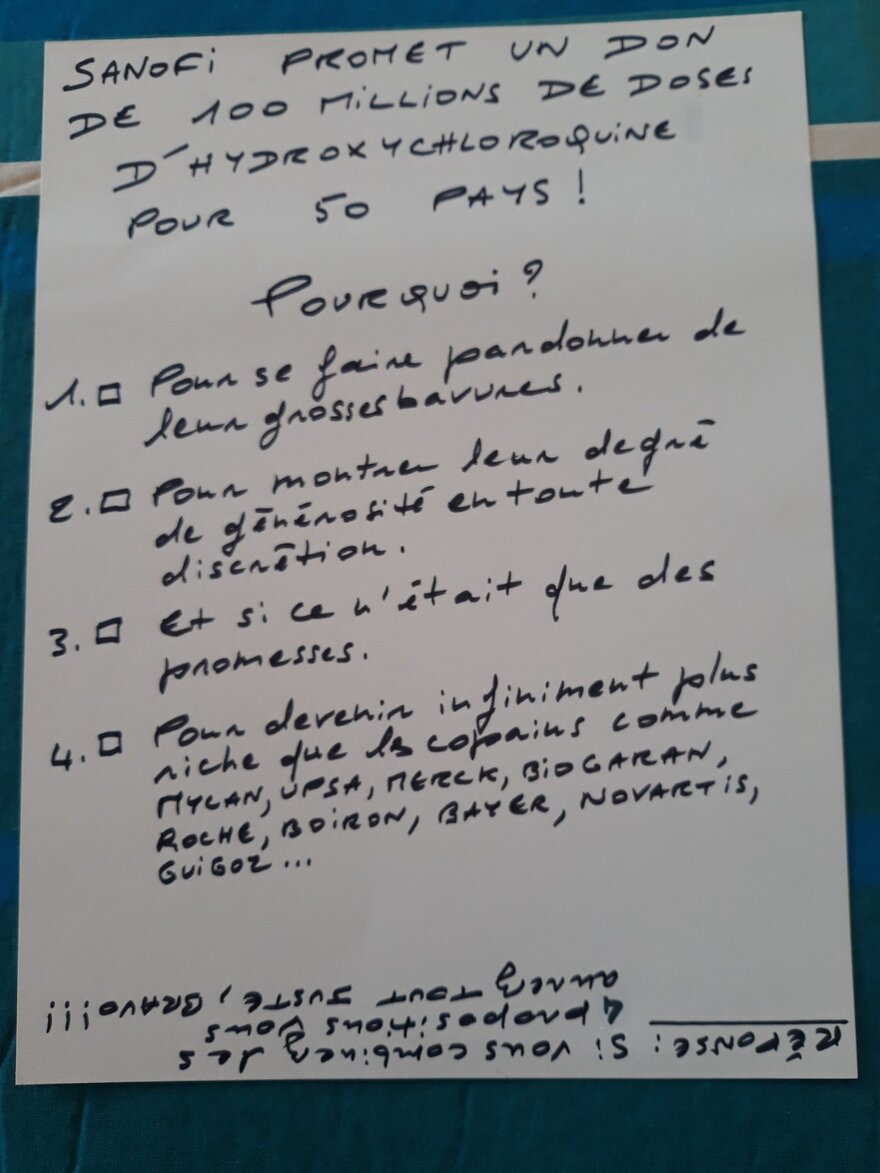 SANOFI PROMET UN DON
DE 100 MILLIONS DE DOSES
D'HYDROXYCHLOROQUINE
POUR 50 PAYS !
POURQUOI ?
1. □ Pour se faire pardonner de
leur grosses bavures.
2. □ Pour montrer leur degré
de générosité en toute
discrétion.
3. □ Et si ce n'était que des
promesses.
4. □ Pour devenir infiniment plus
riche que les copains comme
MYLAN, UPSA, MERCK, BIOGARAN,
ROCHE, BOIRON, BAYER, NOVARTIS,
GUIGOZ ...
RÉPONSE : Si vous combinez les
4 propositions vous
aurez TOUT JUSTE, BRAVO !!!